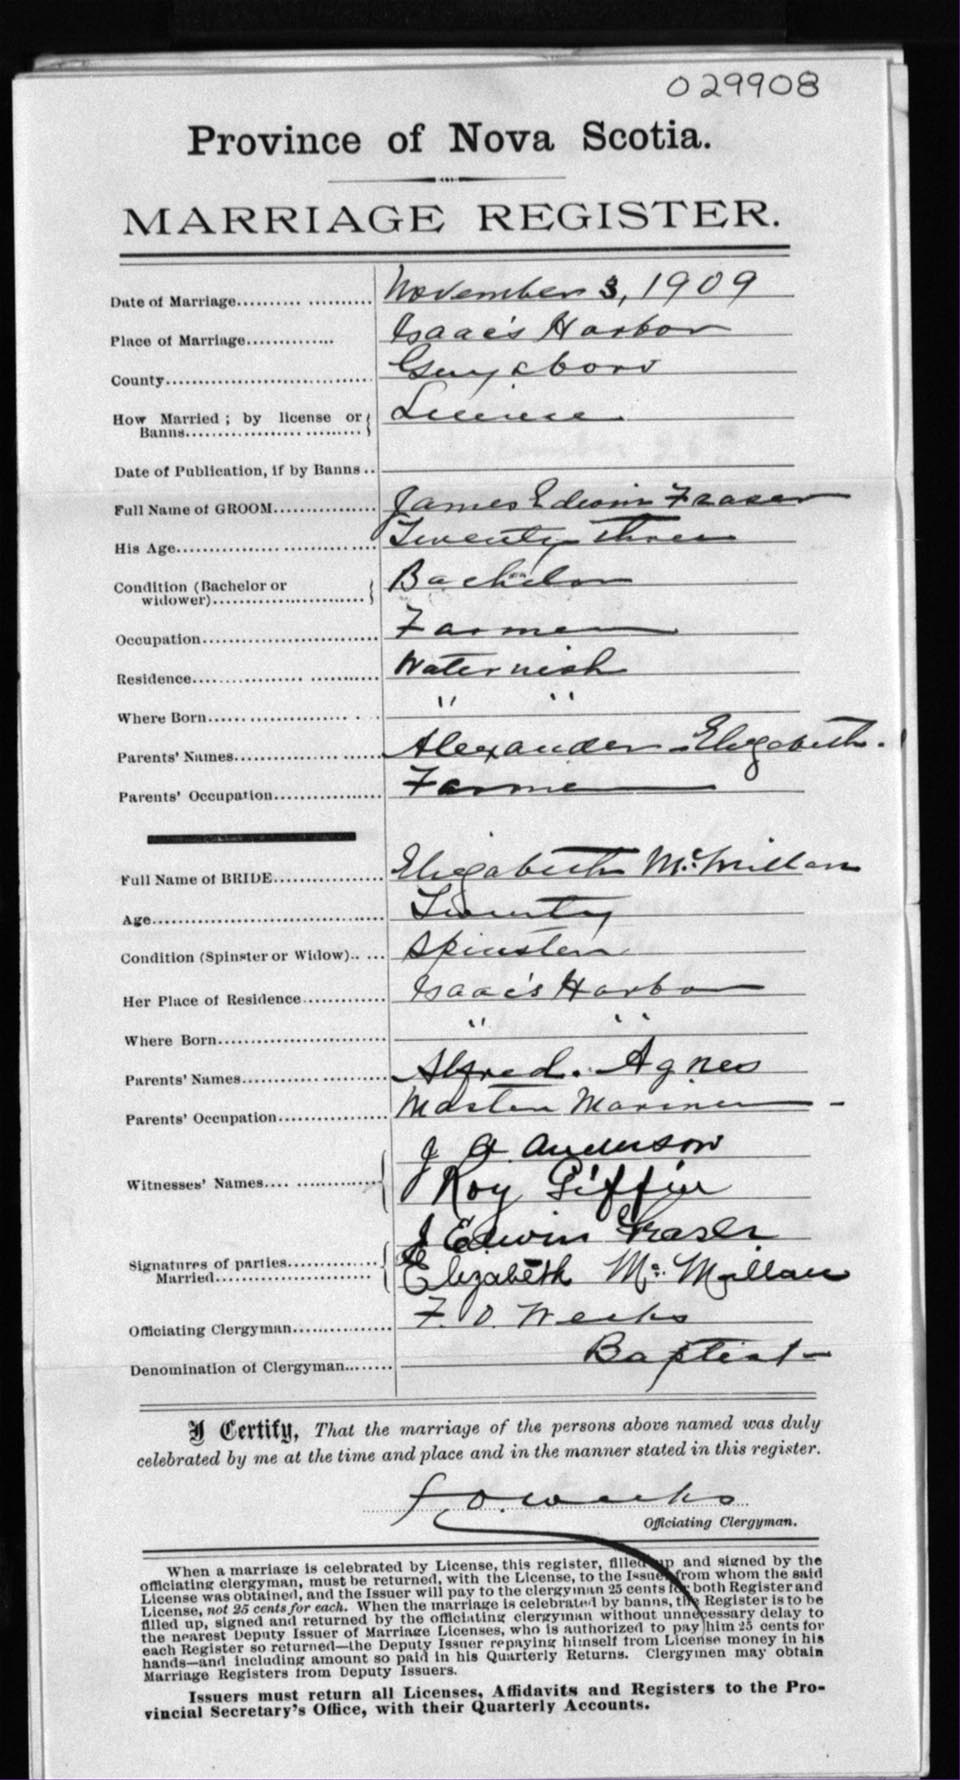 029908
Province of Nova Scotia.
MARRIAGE REGISTER.
Date of Marriage.......... .......... November 3, 1909
Place of Marriage............. Isaac's Harbor
County................................ Guysboro
How Married ; by license or License
Banns...............................
Date of Publication, if by Banns ..
Full Name of GROOM................ James Edwin Fraser
His Age................................ Twenty three
Condition (Bachelor or Bachelor
widower)...........................
Occupation........................... Farmer
Residence............................ Waternish
Where Born.......................... " "
Parents' Names..................... Alexander Elizabeth.
Parents' Occupation................ Farmer
Full Name of BRIDE................. Elizabeth McMillan
Age.................................... Twenty
Condition (Spinster or Widow).. ... Spinster
Her Place of Residence............. Isaac's Harbor
Where Born.......................... " "
Parents' Names..................... Alfred. Agnes
Parents' Occupation................ Master Mariner -
Witnesses' Names.... ............. J A. Anderson
Roy Giffin
Signatures of parties.............. J Edwin Fraser
Married....................... Elizabeth Mc Millan
Officiating Clergyman............... F. O. Weeks
Denomination of Clergyman........ Baptist
I Certify, That the marriage of the persons above named was duly
celebrated by me at the time and place and in the manner stated in this register.
F. O. Weeks
Officiating Clergyman.
When a marriage is celebrated by License, this register, filled up and signed by the
officiating clergyman, must be returned, with the License, to the Issuer from whom the said
License was obtained, and the Issuer will pay to the clergyman 25 cents for both Register and
License, not 25 cents for each. When the marriage is celebrated by banns, the Register is to be
filled up, signed and returned by the officiating clergyman without unnecessary delay to
the nearest Deputy Issuer of Marriage Licenses, who is authorized to pay him 25 cents for
each Register so returned—the Deputy Issuer repaying himself from License money in his
hands—and including amount so paid in his Quarterly Returns. Clergymen may obtain
Marriage Registers from Deputy Issuers.
Issuers must return all Licenses, Affidavits and Registers to the Pro-
vincial Secretary's Office, with their Quarterly Accounts.